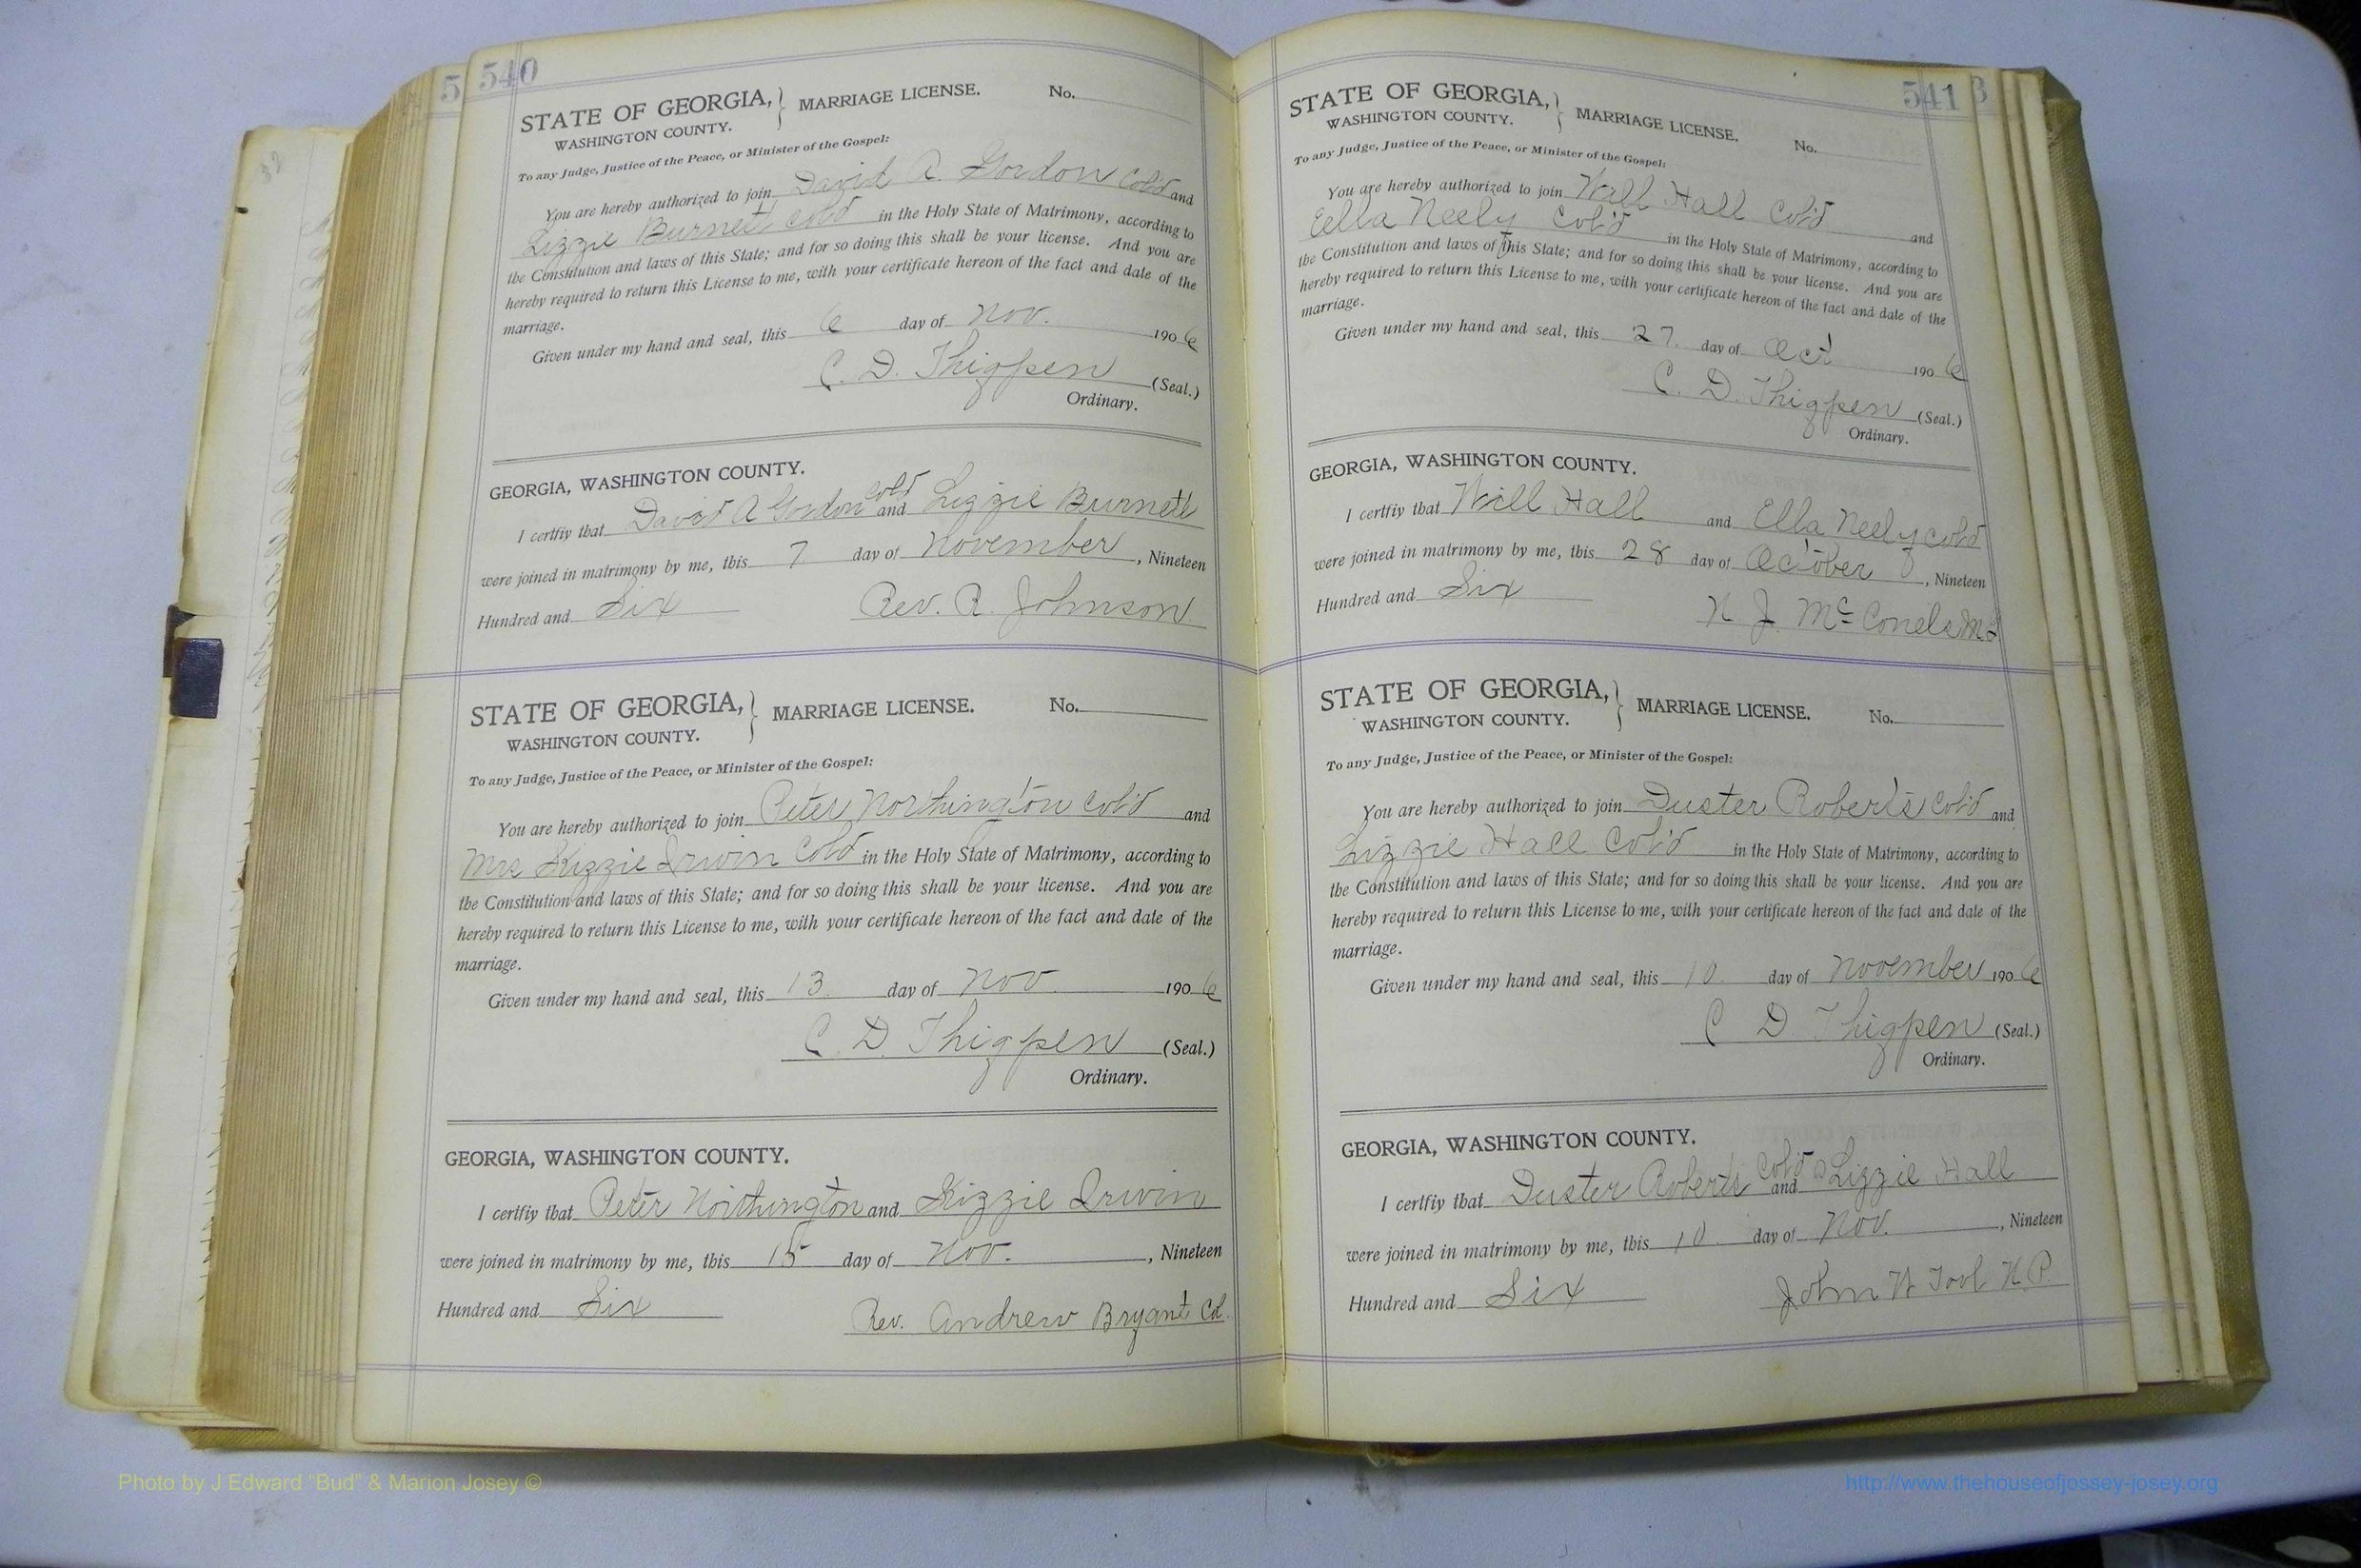 540
STATE OF GEORGIA, } MARRIAGE LICENSE. No.
WASHINGTON COUNTY.
To any Judge, Justice of the Peace, or Minister of the Gospel:
You are hereby authorized to join David A. Gordon Col'd and
Lizzie Burnett Col'd in the Holy State of Matrimony, according to
the Constitution and laws of this State; and for so doing this shall be your license. And you are
hereby required to return this License to me, with your certificate hereon of the fact and date of the
marriage.
Given under my hand and seal, this 6 day of Nov. 1906
C. D. Thigpen (Seal.)
Ordinary.
GEORGIA, WASHINGTON COUNTY.
I certfiy that David A Gordon Col'd and Lizzie Burnett
were joined in matrimony by me, this 7 day of November, Nineteen
Hundred and Six Rev. R. Johnson
STATE OF GEORGIA, } MARRIAGE LICENSE. No.
WASHINGTON COUNTY.
To any Judge, Justice of the Peace, or Minister of the Gospel:
You are hereby authorized to join Peter Northington Col'd and
Mrs Kizzie Irwin Col'd in the Holy State of Matrimony, according to
the Constitution and laws of this State; and for so doing this shall be your license. And you are
hereby required to return this License to me, with your certificate hereon of the fact and date of the
marriage.
Given under my hand and seal, this 13. day of Nov 1906
C. D. Thigpen (Seal.)
Ordinary.
GEORGIA, WASHINGTON COUNTY.
I certfiy that Peter Northington and Kizzie Irwin
were joined in matrimony by me, this 15 day of Nov., Nineteen
Hundred and Six Rev. Andrew Bryant Col.
541
STATE OF GEORGIA, } MARRIAGE LICENSE. No.
WASHINGTON COUNTY.
To any Judge, Justice of the Peace, or Minister of the Gospel:
You are hereby authorized to join Will Hall Col'd and
Eella Neely Col'd in the Holy State of Matrimony, according to
the Constitution and laws of this State; and for so doing this shall be your license. And you are
hereby required to return this License to me, with your certificate hereon of the fact and date of the
marriage.
Given under my hand and seal, this 27. day of Oct 1906
C. D. Thigpen (Seal.)
Ordinary.
GEORGIA, WASHINGTON COUNTY.
I certfiy that Will Hall and Ella Neely Col'd
were joined in matrimony by me, this 28 day of October, Nineteen
Hundred and Six N. J. McConels
STATE OF GEORGIA, } MARRIAGE LICENSE. No.
WASHINGTON COUNTY.
To any Judge, Justice of the Peace, or Minister of the Gospel:
You are hereby authorized to join Duster Roberts Col'd and
Lizzie Hall Col'd in the Holy State of Matrimony, according to
the Constitution and laws of this State; and for so doing this shall be your license. And you are
hereby required to return this License to me, with your certificate hereon of the fact and date of the
marriage.
Given under my hand and seal, this 10. day of November 1906
C D. Thigpen (Seal.)
Ordinary.
GEORGIA, WASHINGTON COUNTY.
I certfiy that Duster Roberts Col'd and Lizzie Hall
were joined in matrimony by me, this 10. day of Nov., Nineteen
Hundred and Six John W Tool N.P.
Photo by J Edward "Bud" & Marion Josey ©
http://www.thehouseofjossey-josey.org